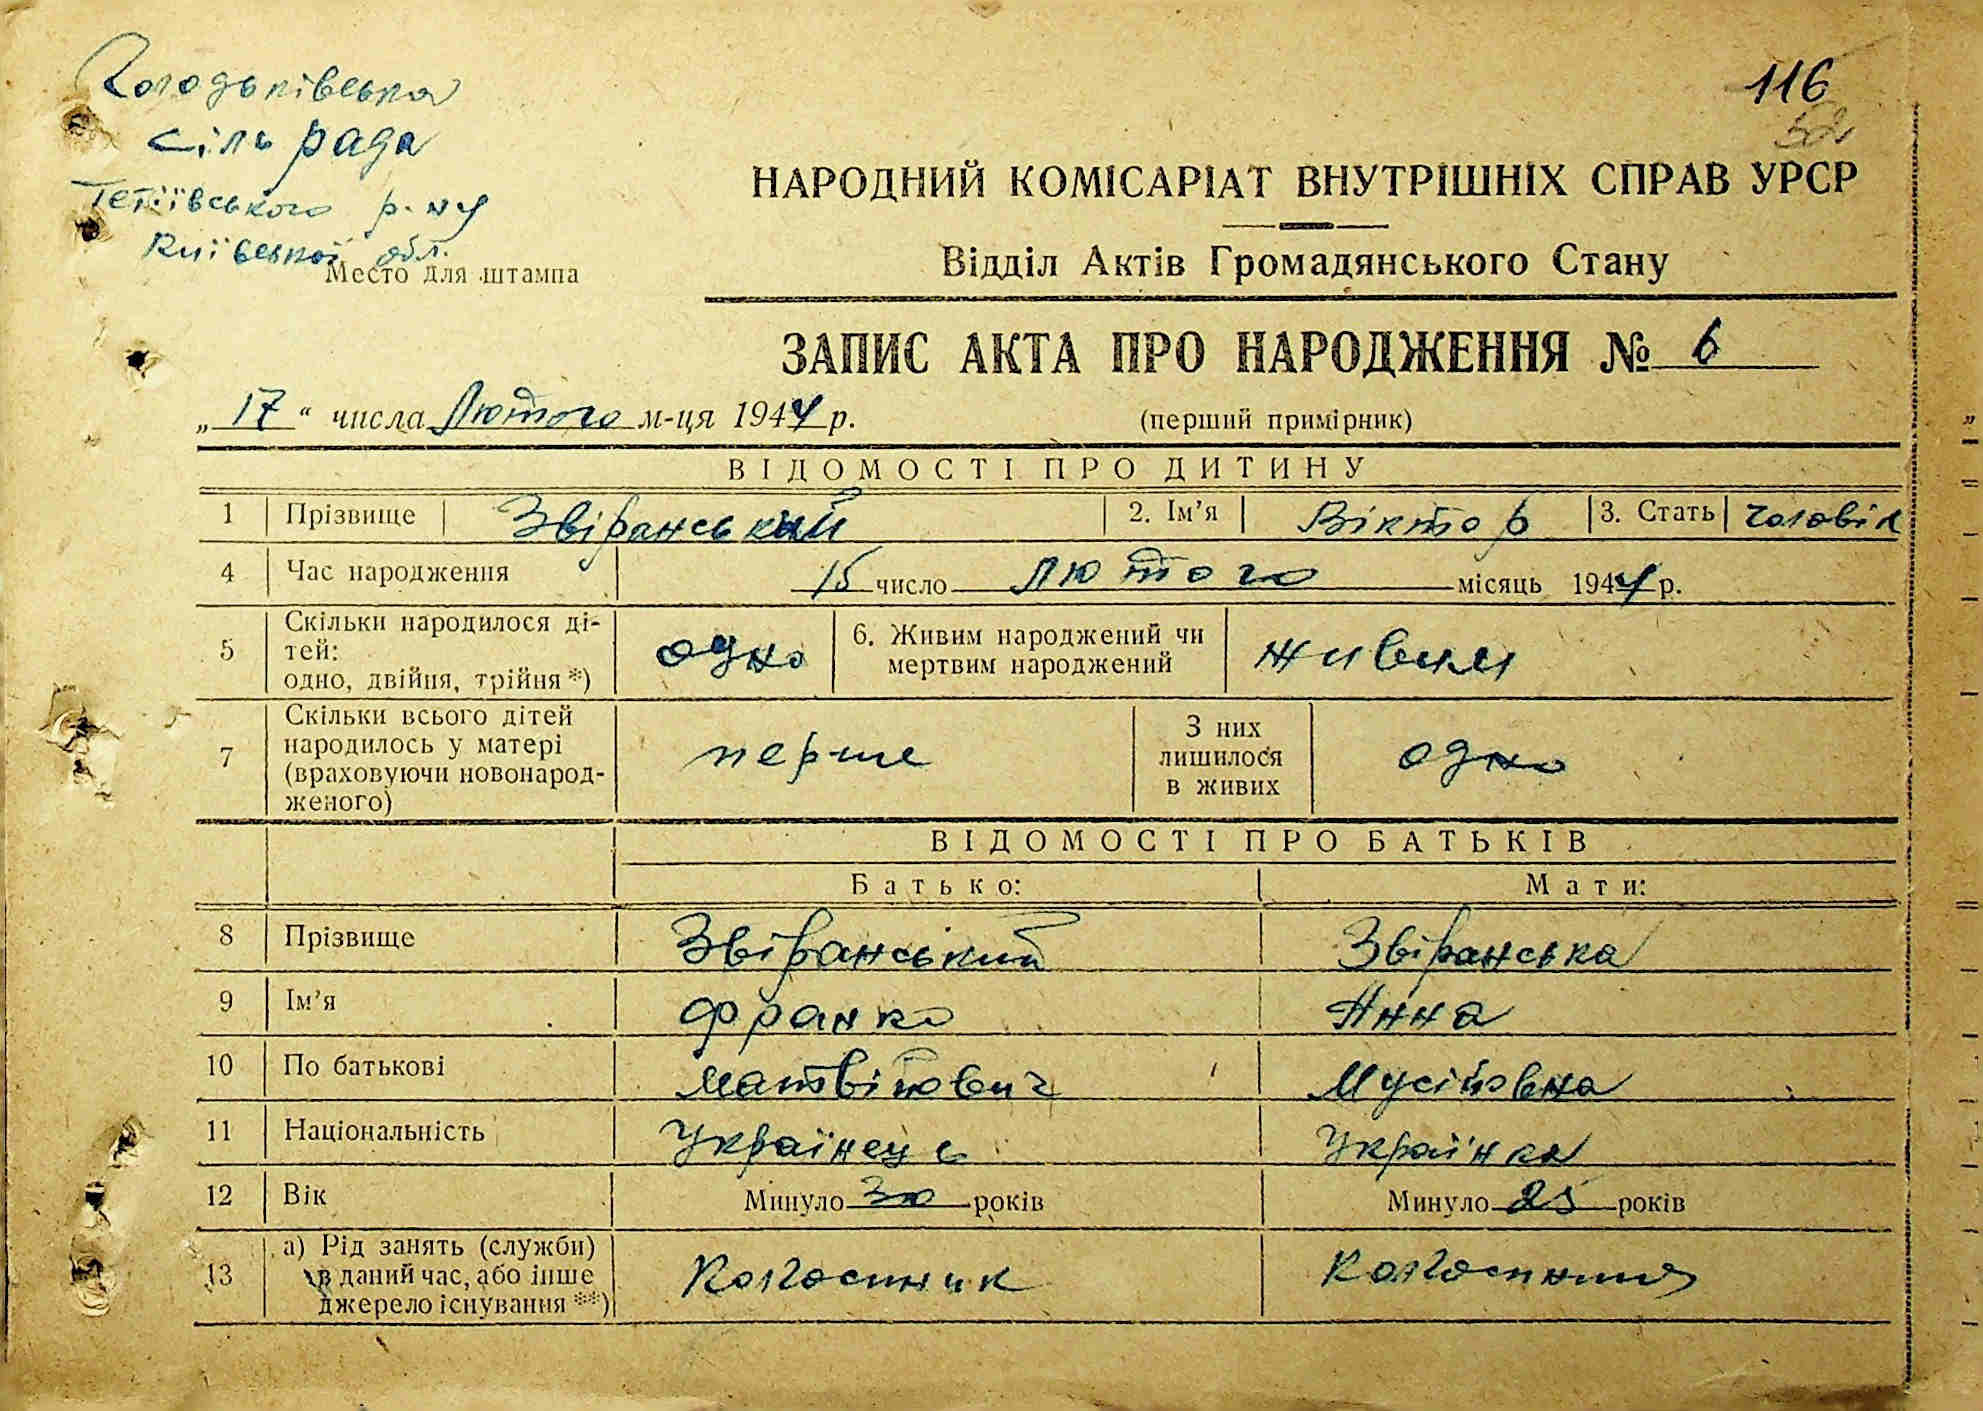 Голодьківська
сіль рада
Тетіївського р-ну
Київської обл.
Место для штампа
116
52
НАРОДНИЙ КОМІСАРІАТ ВНУТРІШНІХ СПРАВ УРСР
Відділ Актів Громадянського Стану
ЗАПИС АКТА ПРО НАРОДЖЕННЯ № 6
„17“ числа Лютого м-ця 1944 р. (перший примірник)
ВІДОМОСТІ ПРО ДИТИНУ
1 Прізвище Звіранський 2. Ім’я Віктор 3. Стать чоловік
4 Час народження 15 число лютого місяць 1944 р.
5 Скільки народилося ді-
тей:
одно, двійня, трійня *) одно 6. Живим народжений чи
мертвим народжений живим
7 Скільки всього дітей
народилось у матері
(враховуючи новонарод-
женого) перше З них
лишилося
в живих одно
ВІДОМОСТІ ПРО БАТЬКІВ
Батько: Мати:
8 Прізвище Звіранський Звіранська
9 Ім’я Франко Анна
10 По батькові Матвійович Мусійовна
11 Національність Українець Українка
12 Вік Минуло 30 років Минуло 25 років
13 а) Рід занять (служби)
в даний час, або інше
джерело існування **) Колгоспник Колгоспниця